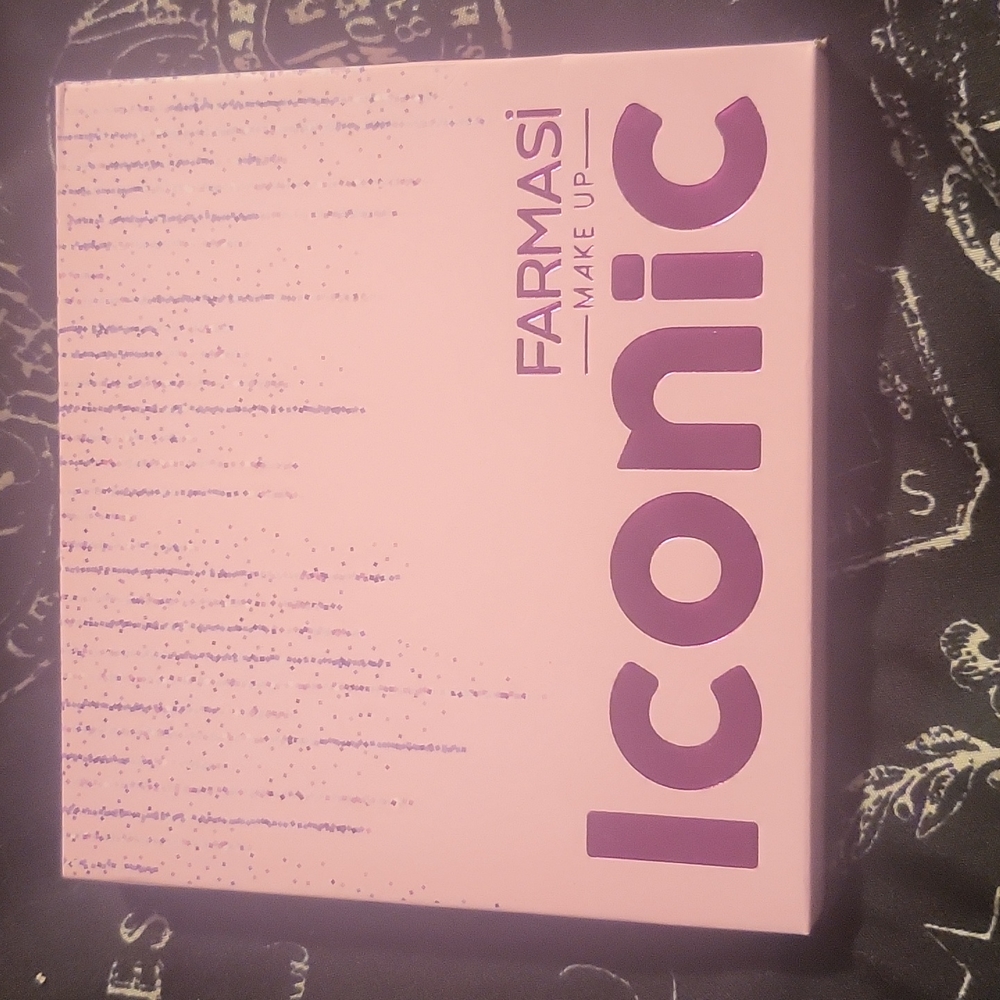 FARMASi
MAKE UP
Iconic
ES
S